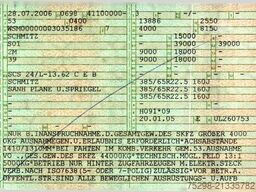 28.07.2006 0698 41100000-
53 0400 13886 2550
WSM00000003035186 4000 8150
SCHMITZ - 15000 -
SO1 - 39000 39000
2M 9000 18000 -
39 9000 18000
SCS 24/L-13.62 C E B 385/65R22.5 160J
SCHMITZ 385/65R22.5 160J
SANH PLANE U.SPRIEGEL 385/65R22.5 160J
H091*09
20.01.05 E UL260753
NUR B.INANSPRUCHNAHME D.GESAMTGEW.DES SKFZ GRÖßER 4000
0KG AUSNAHMEGEN.U.ERLAUBNIS ERFORDERLICH*ACHSABSTAND
1410/1310MM*BEI FAHRTEN IM KOMB.VERKEHR GEM.53.AUSNAHME
VO .,GES.GEW.DES SKFZ 44000KG*TECHN.MÖGL.FELD 13:1
5000KG*BETRIEB NUR HINTER ZUGFAHRZEUGEN M ELEKTR.STECK
VERB.NACH ISO7638(5- ODER 7-POLIG)ZULÄSSIG*VOR BETR.A.
ÖFFENTL.STR.SIND ALLE BEWEGLICHEN AUSRÜSTUNGS- U.AUFB
75298-21335782